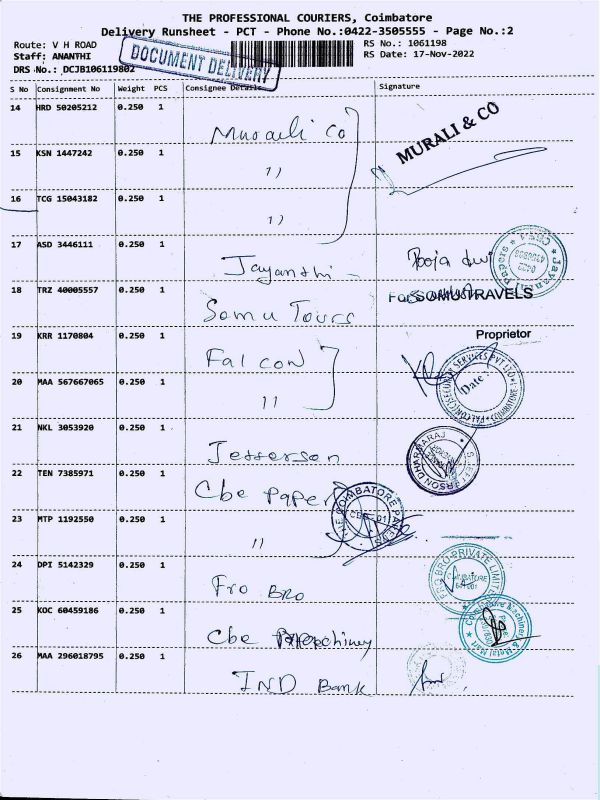 THE PROFESSIONAL COURIERS, Coimbatore
Delivery Runsheet - PCT - Phone No.:0422-3505555 - Page No.:2
Route: V H ROAD
RS No.: 1061198
Staff: ANANTHI
RS Date: 17-Nov-2022
DRS No.: DCJB106119802
DOCUMENT DELIVERY
S No Consignment No Weight PCS Consignee Details Signature
14 HRD 50205212 0.250 1
Murali Co
MURALI & CO
15 KSN 1447242 0.250 1
11
16 TCG 15043182 0.250 1
11
17 ASD 3446111 0.250 1
Jayanthi
Pooja
18 TRZ 40005557 0.250 1
Somu Tours
For SOMU TRAVELS
19 KRR 1170804 0.250 1
Falcon
Proprietor
20 MAA 567667065 0.250 1
11
Date:
SECURITY SERVICES PVT LTD
21 NKL 3053920 0.250 1
Jefferson
S. JEFFERSON DHARMARAJ
22 TEN 7385971 0.250 1
Cbe Paper
THE COIMBATORE PAPERS
23 MTP 1192550 0.250 1
11
24 DPI 5142329 0.250 1
Fro BRO
FRO BRO PRIVATE LIMITED
COIMBATORE
641 001
25 KOC 60459186 0.250 1
Cbe
Coimbatore Machines & Metal Mart
26 MAA 296018795 0.250 1
IND Bank